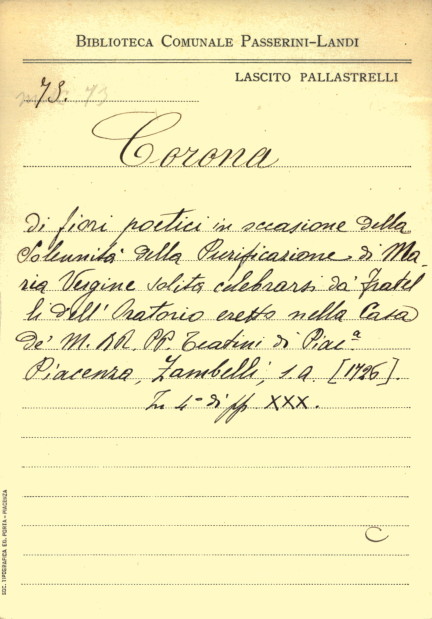 BIBLIOTECA COMUNALE PASSERINI-LANDI
LASCITO PALLASTRELLI
73.
73
Corona
di fiori poetici in occasione della
Solennità della Purificazione di Ma
ria Vergine solita celebrarsi da' Fratel
li dell' Oratorio eretto nella Casa
de' M. RR. PP. Teatini di Piacª
Piacenza, Zambelli, s.a. [1726].
In 4º di pp XXX.
C
SOC. TIPOGRAFICA ED. PORTA - PIACENZA